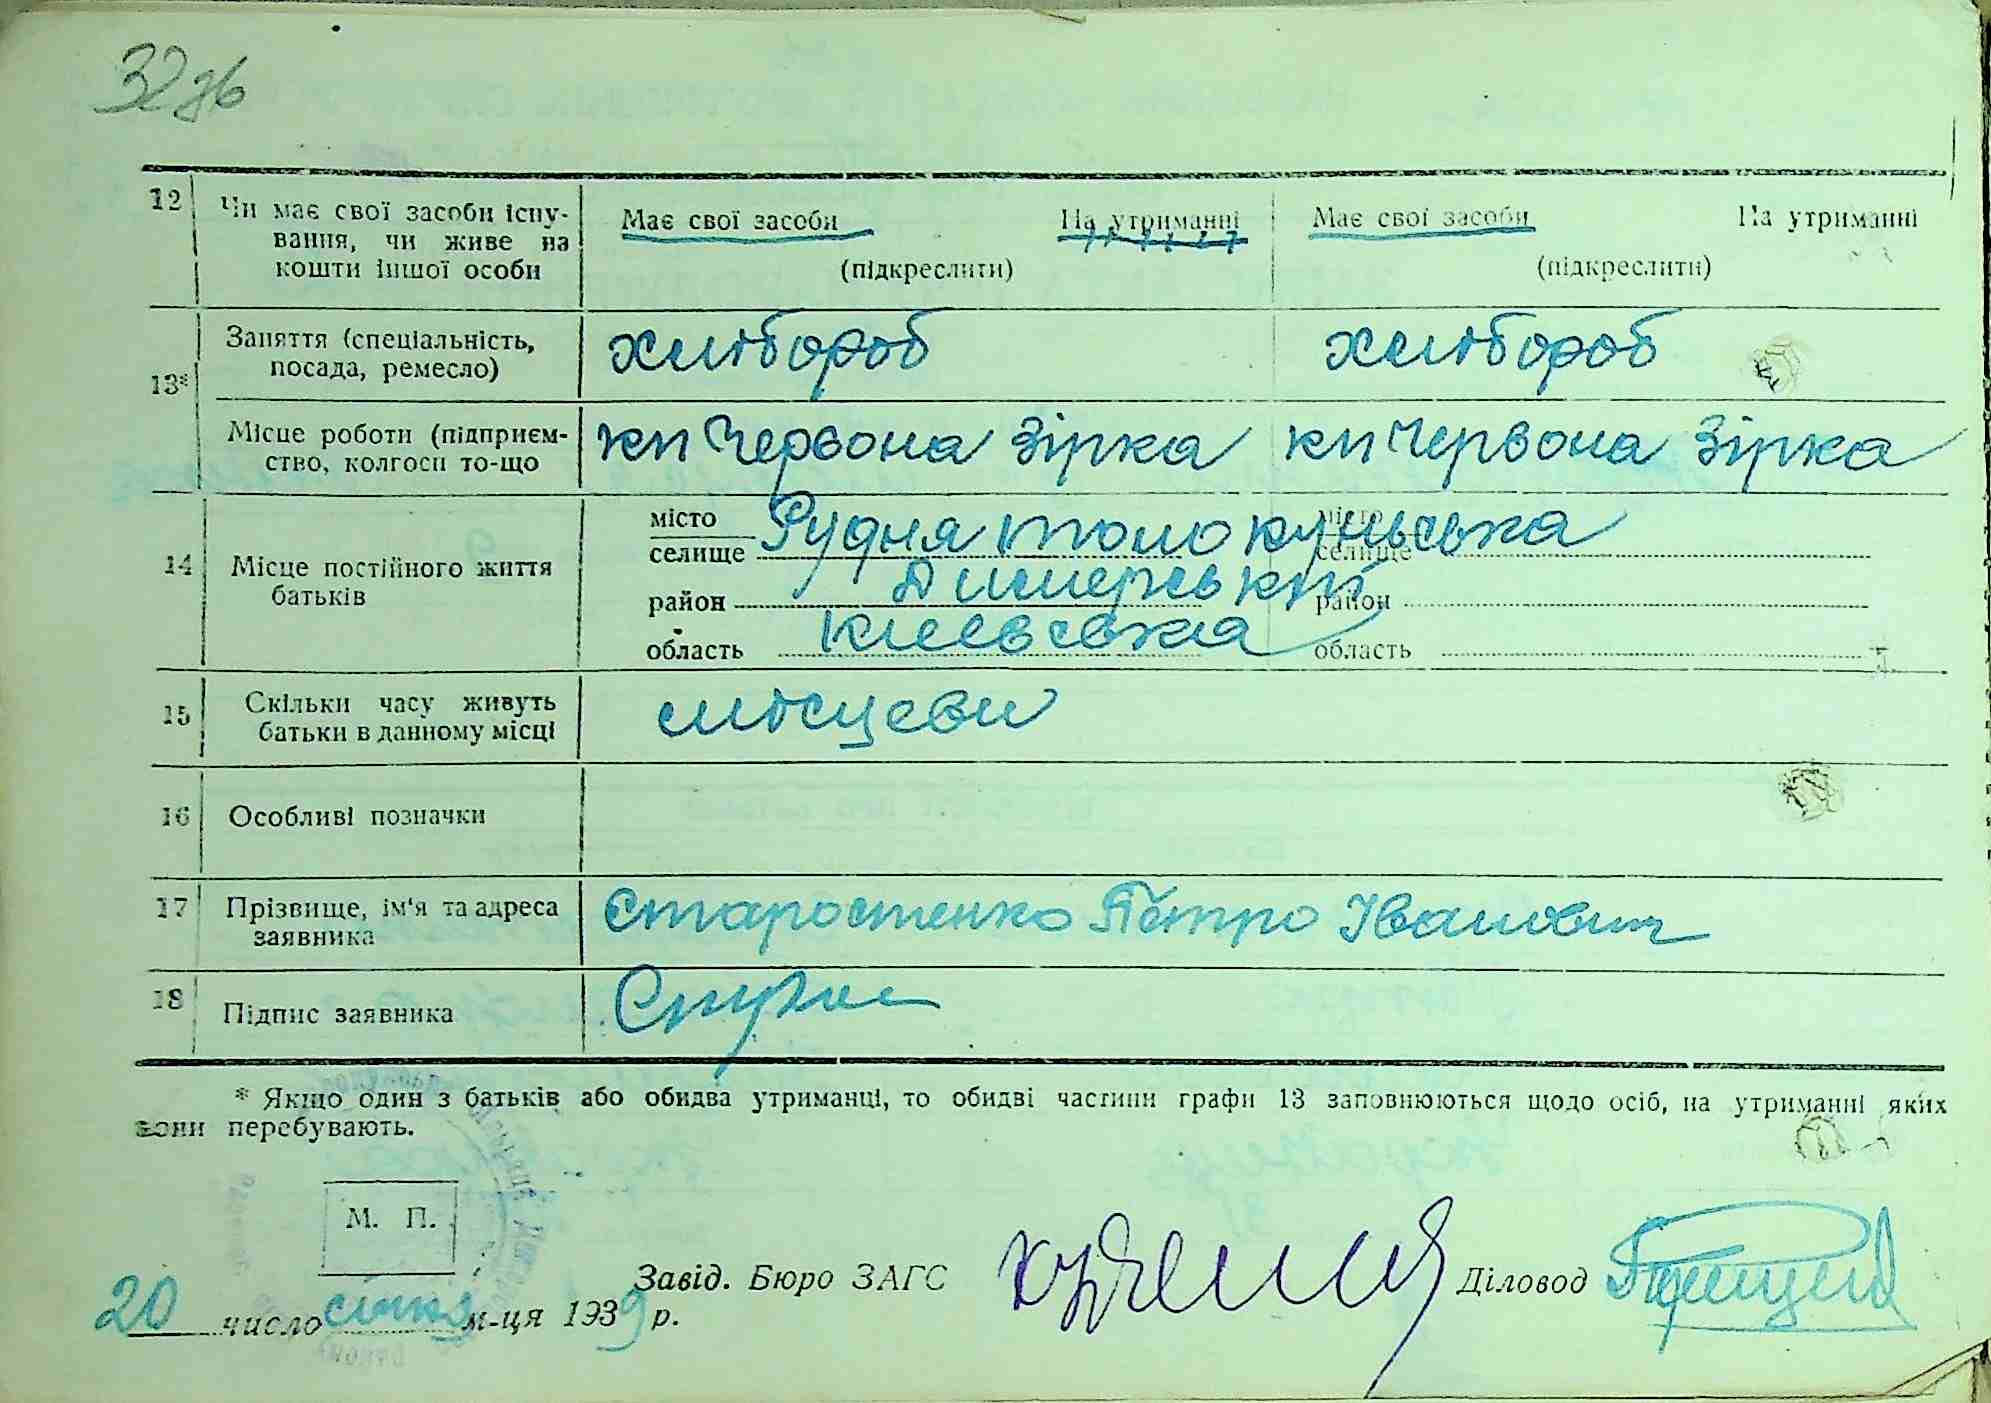 32 зв
12 Чи має свої засоби існу- Має свої засоби На утриманні Має свої засоби На утриманні
вання, чи живе на
кошти іншої особи (підкреслити) (підкреслити)
13* Заняття (спеціальність, хлібороб хлібороб
посада, ремесло)
Місце роботи (підприєм- кп Червона Зірка кп Червона Зірка
ство, колгосп то-що
14 Місце постійного життя місто Рудня толокунська місто
батьків селище селище
район Димерський район
область Киевська область
15 Скільки часу живуть місцеви
батьки в данному місці
16 Особливі позначки
17 Прізвище, ім'я та адреса Старостенко Пётро Іванович
заявника
18 Підпис заявника
* Якщо один з батьків або обидва утриманці, то обидві частини графи 13 заповнюються щодо осіб, на утриманні яких
вони перебувають.
М. П.
Завід. Бюро ЗАГС Діловод
20 число січня м-ця 1939 р.